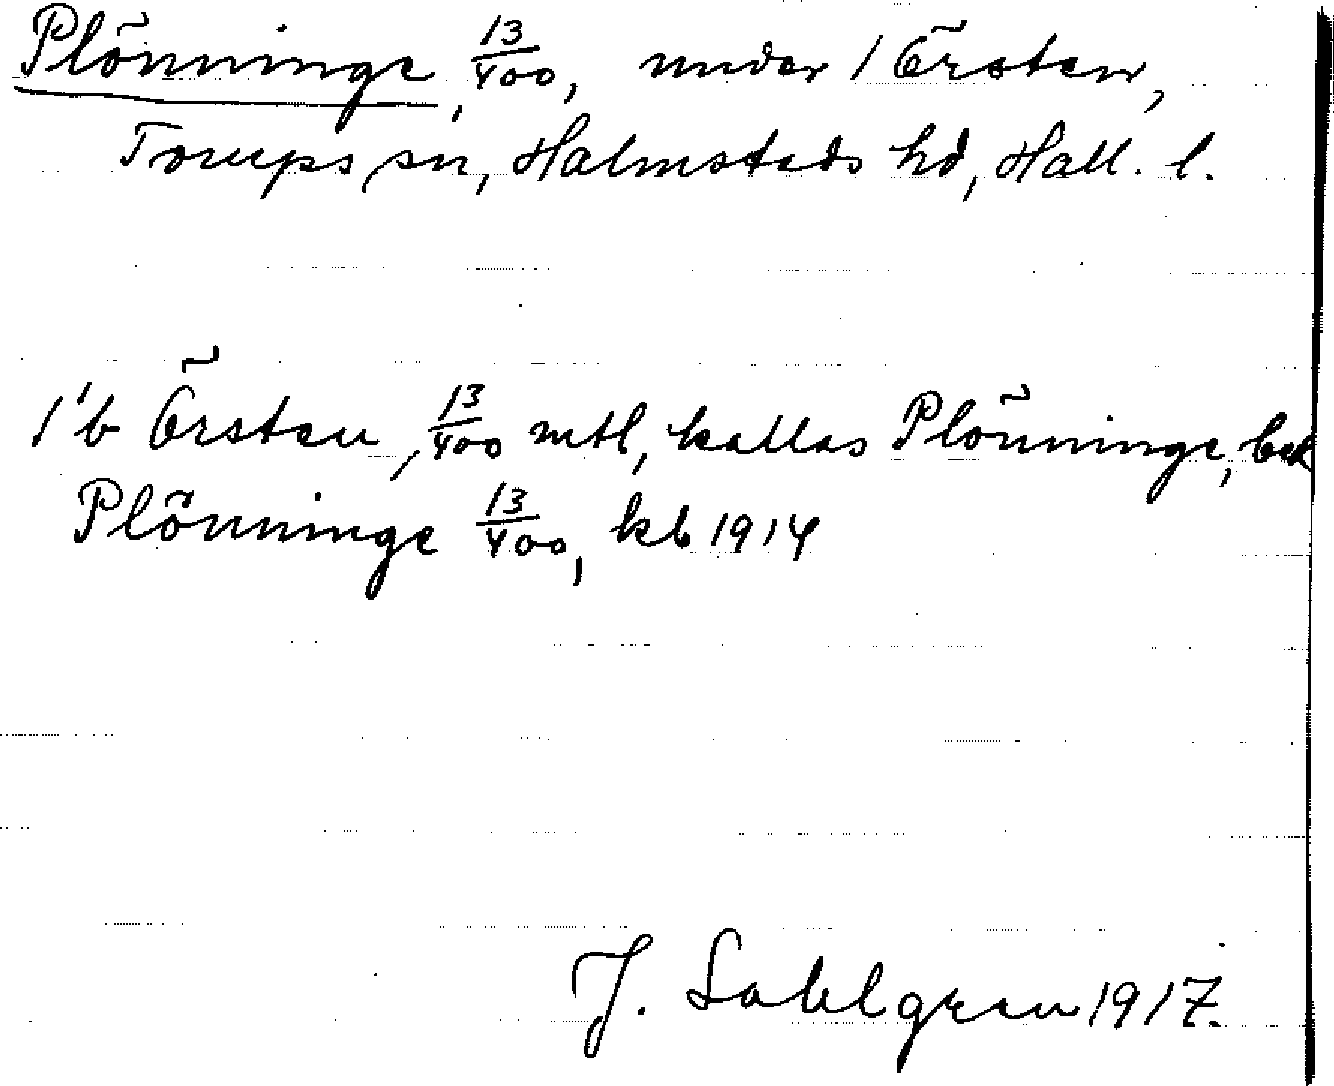 Plönninge, 13/400, under 1 Örsten,
Torups sn, Halmstads hd, Hall. l.
1'b Örsten, 13/400 mtl, kallas Plönninge, bek
Plönninge 13/400, kb 1914
J. Sahlgren 1917.